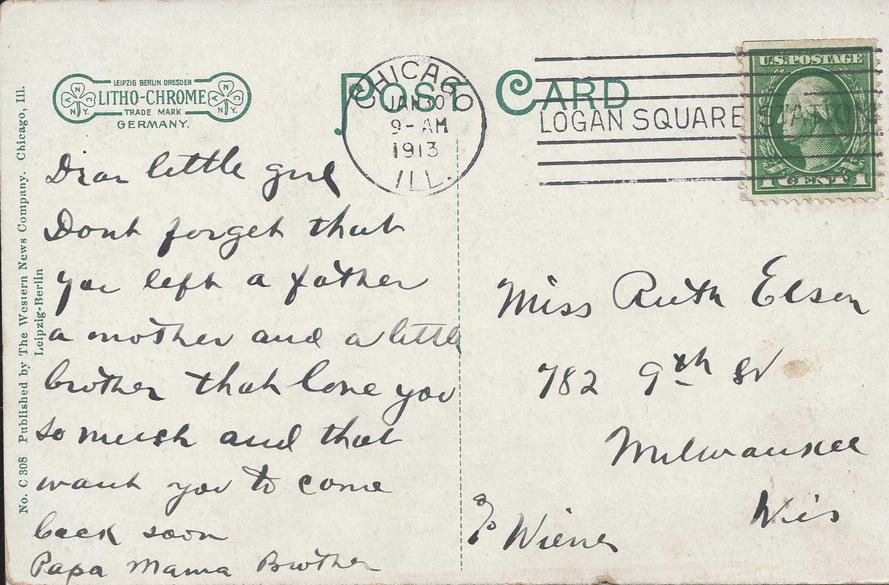 LEIPZIG BERLIN DRESDEN
LITHO-CHROME
TRADE MARK
GERMANY.
POST CARD
CHICAGO
JAN 30
9-AM
1913
ILL.
LOGAN SQUARE STATION
U.S. POSTAGE
1 CENT 1
No. C 308 Published by The Western News Company. Chicago, Ill.
Leipzig-Berlin
Dear little girl
Dont forget that
you left a father
a mother and a little
brother that love you
so much and that
want you to come
back soon
Papa Mama Brother
Miss Ruth Elson
782 9th St
Milwaukee
Wis
c/o Wiener